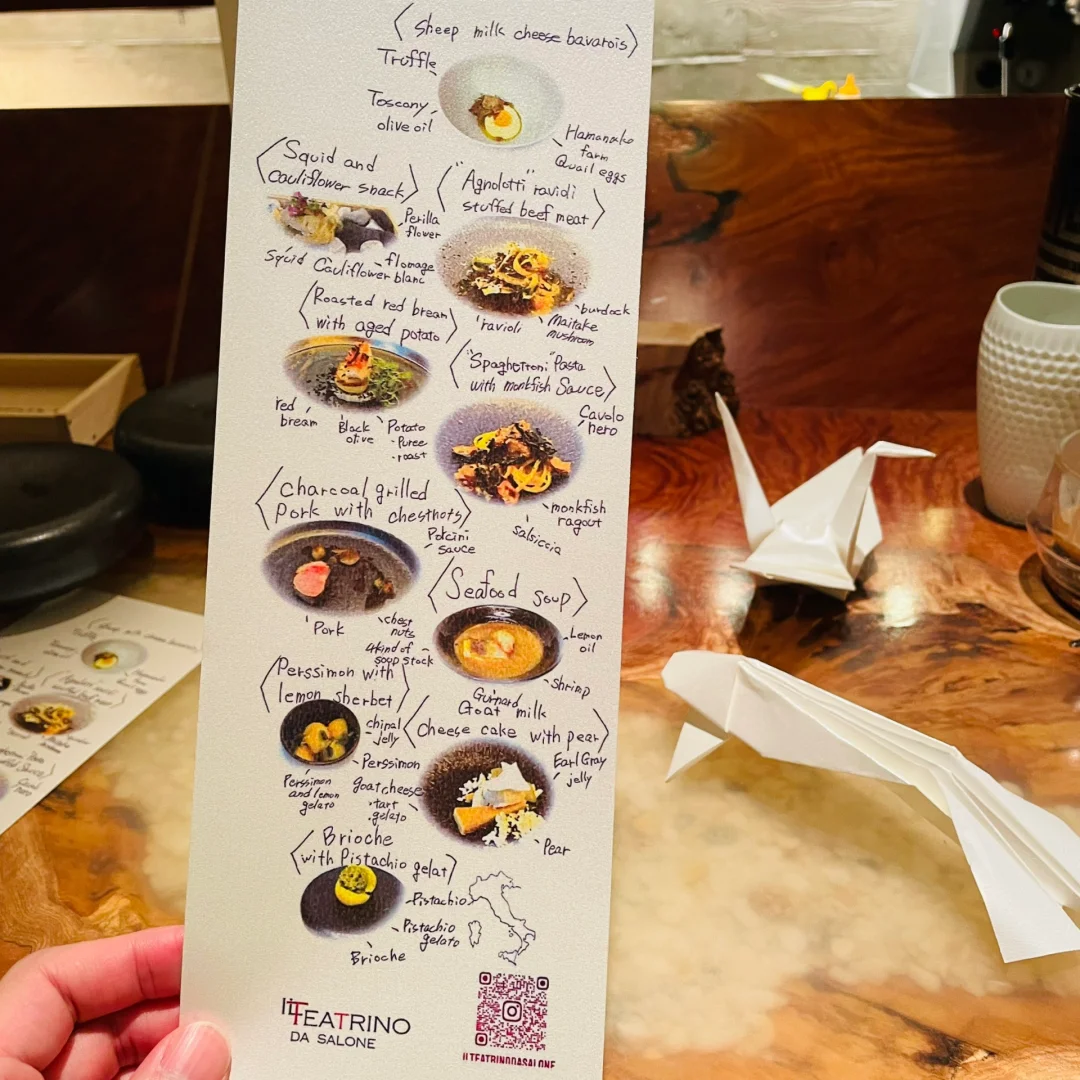 <Sheep milk cheese bavarois>
Truffle
Toscany
olive oil
Hamanako
farm
Quail eggs
<Squid and
Cauliflower snack>
Perilla
flower
Squid Cauliflower
flomage
blanc
<"Agnolotti" ravidi
stuffed beef meat>
burdock
ravioli
Maitake
mushroom
<Roasted red bream
with aged potato>
red
bream
Black
olive
Potato
・Puree
・roast
<"Spaghettoni" Pasta
with monkfish Sauce>
Cavolo
nero
monkfish
ragout
salsiccia
<Charcoal grilled
pork with chestnuts>
Porcini
sauce
Pork
chest
nuts
4kind of
soup stock
<Seafood soup>
Lemon
oil
Shrimp
Gurnard
<Perssimon with
lemon sherbet>
chinal
jelly
Perssimon
Perssimon
and lemon
gelato
<Goat milk
Cheese cake with pear>
Earl Gray
jelly
goat cheese
・tart
・gelato
Pear
<Brioche
with Pistachio gelat>
Pistachio
Pistachio
gelato
Brioche
IL TEATRINO
DA SALONE
ILTEATRINODASALONE